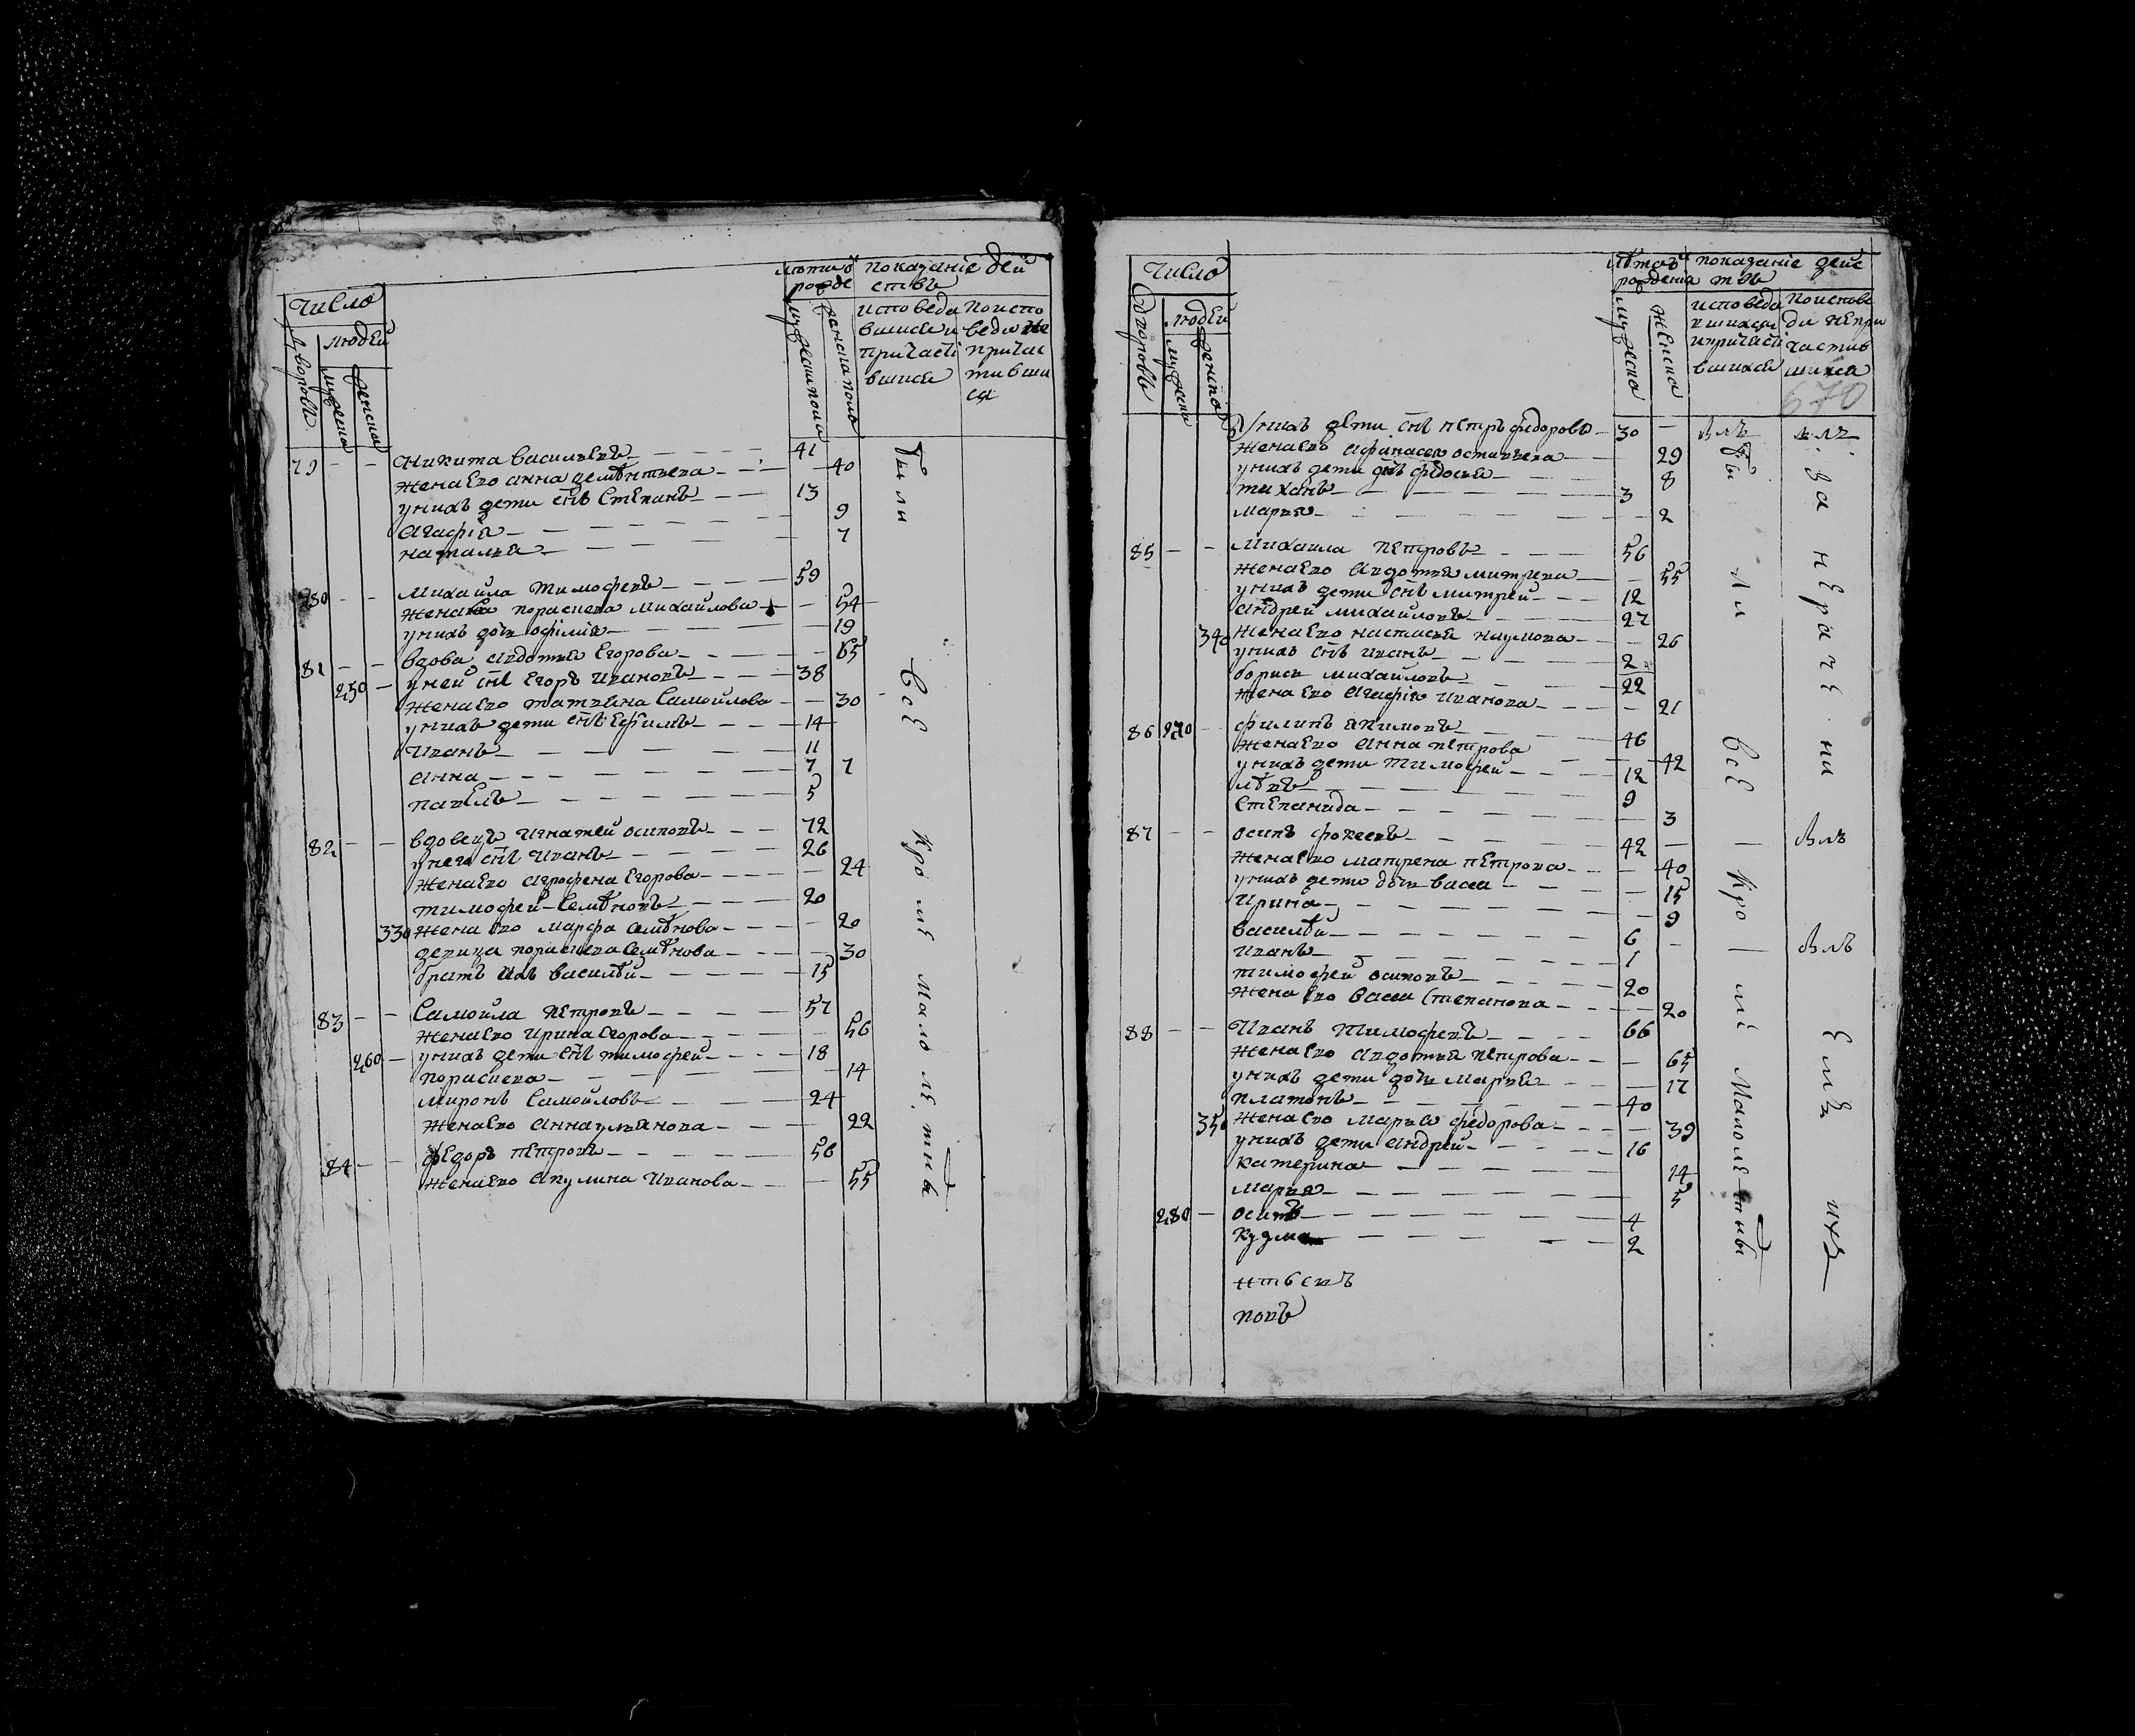 число
людей
дворовъ
мужеска
женска
лѣтиѣ рожде
мужескаполу
женскаполу
показанiе дей
ствъ
исповеда
вшисеи
причастi
вшисеи
поиспо
веди не
причас
тивши
ся
79 — — Никита васильевъ — 41
женаево анна дементьева — 40
унихъ дети снъ Степанъ — 13
Агафiя — 9
наталья — 7
280 — — Михайла тимофеевъ — 59
жена порасцева михайлова — 54
унихъ дочь офимiя — 19
81 — — вдова авдотья Егорова — 65
250 — уней снъ Егоръ ивановъ — 38
женаево татьяна Самойлова — 30
унихъ дети снъ Ефимъ — 14
иванъ — 11
анна — 7 7
павелъ — 5
82 — — вдовецъ игнатей осиповъ — 72
унего снъ иванъ — 26
женаево аграфена Егорова — 24
тимофей Семѣновъ — 20
330 жена ево марфа семѣнова — 20
девица порасцева Семѣнова — 30
братъ ихъ василѣй — 15
83 — — Самойла петровъ — 57
женаево ирина егорова — 56
260 — унихъ дети снъ тимофей — 18
порасцева — 14
миронъ Самойловъ — 24
женаево анна ульянова — 22
84 — — федоръ петровъ — 56
женаево акулина иванова — 55
были
все
кроме малолетныхъ
число
людей
дворовъ
мужеска
женска
лѣтаъ
рожденiя
мужеска
женска
показанiе дейс
твъ
исповеда
вшихси
ипричасти
вшихсе
поиспове
ди непри
частив
шихся
670
унихъ дети снъ петръ федоровъ — 30 —
женаево афанасея остапьева — 29
унихъ дети дчь федосья — 8
тиханъ — 3
марья — 2
85 — — Михаила петровъ — 56
женаево авдотья митрева — 55
унихъ дети снъ митрей — 12
андрей михайловъ — 27
340 женаево настасья наумова — 26
унихъ снъ иванъ — 2
борисъ михайловъ — 22
женаево агафiя иванова — 21
86 270 — филипъ акимовъ — 46
женаево анна петрова — 42
унихъ дети тимофей — 12
лѣвъ — 9
степанида — 3
87 — — осипъ фокеевъ — 42
женаево матрена петрова — 40
унихъ дети дочь васса — 15
ирина — 9
василѣй — 6
иванъ — 1
тимофей осиповъ — 20
жена ево васса степанова — 20
88 — — иванъ тимофеевъ — 66
женаево авдотья петрова — 65
унихъ дети дочь марья — 17
платонъ — 40
350 женаево марья федорова — 39
унихъ дети андрей — 16
катерина — 14
марья — 5
280 — осипъ — 4
кузма — 2
попъ
были
все
кроме малолетныхъ